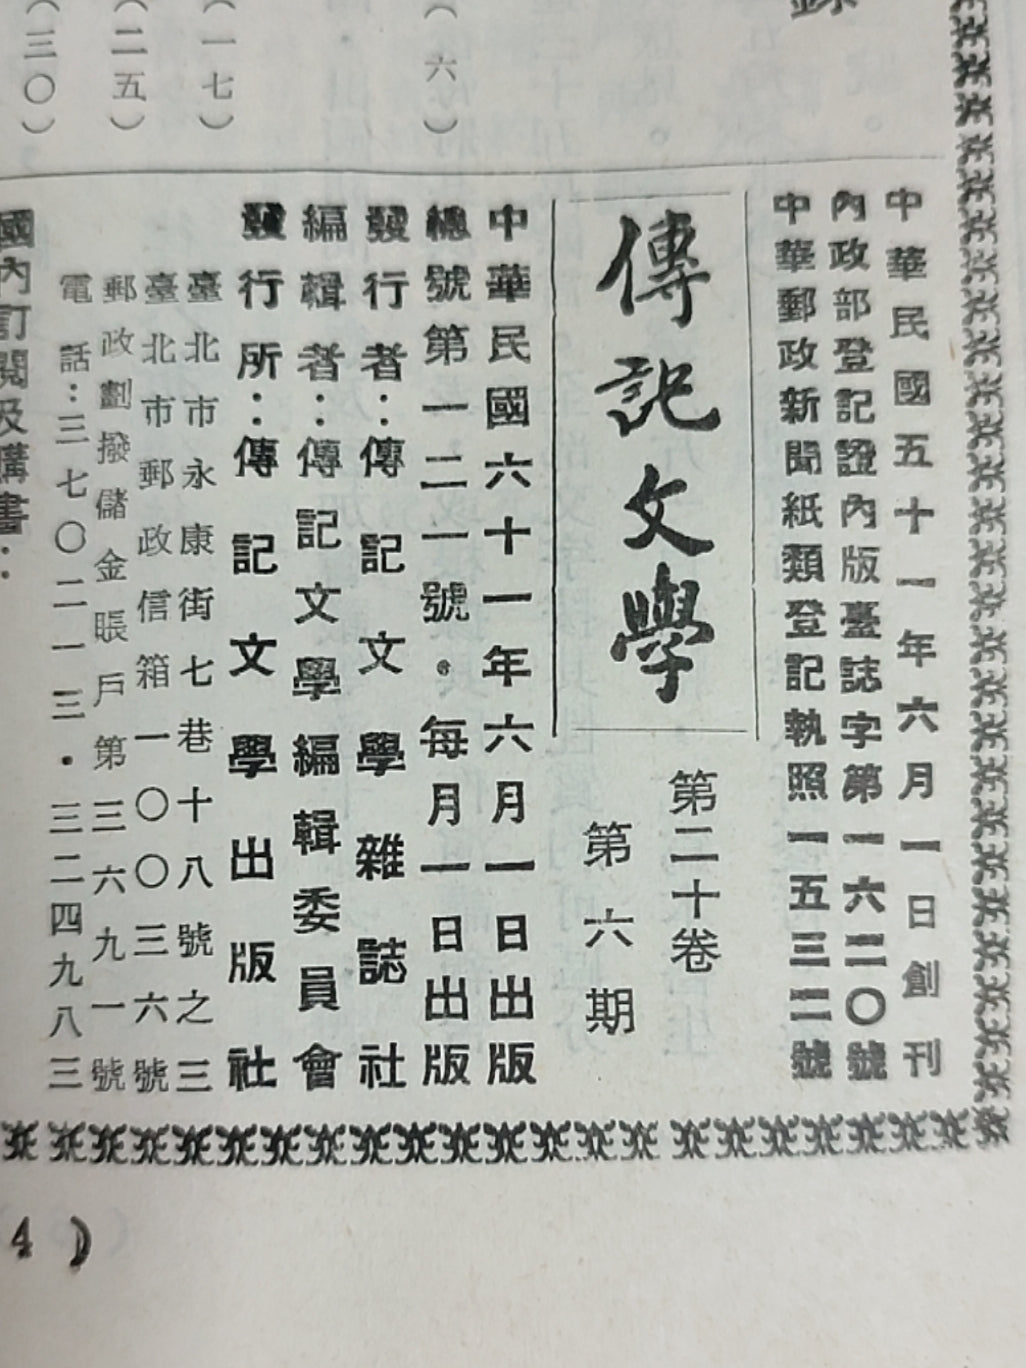 （六）
（一七）
（二五）
（三〇）
中華民國五十一年六月一日創刊
內政部登記證內版臺誌字第一六二〇號
中華郵政新聞紙類登記執照一五三二號
傳記文學
第二十卷
第六期
中華民國六十一年六月一日出版
總號第一二一號．每月一日出版
發行者：傳記文學雜誌社
編輯者：傳記文學編輯委員會
發行所：傳記文學出版社
臺北市永康街七巷十八號之三
臺北市郵政信箱一〇〇三六號
郵政劃撥儲金賬戶第三六九一號
電話：三七〇二一三．三二四九八三
國內訂閱及購書：
4）